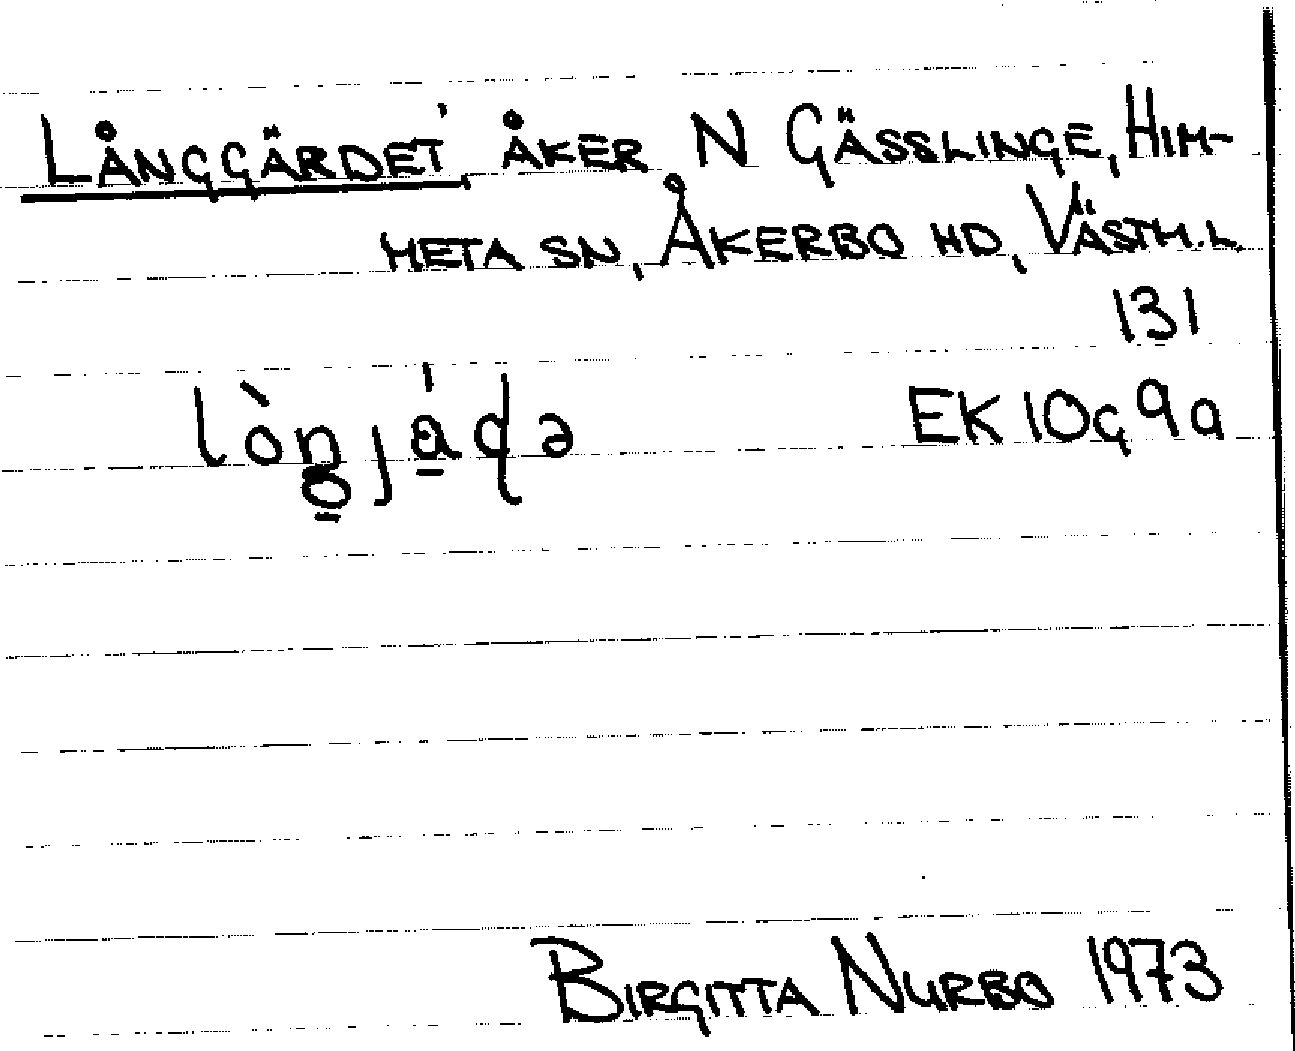 LÅNGGÄRDET, ÅKER, N GÄSSLINGE, HIM-
META SN, ÅKERBO HD, VÄSTM.L.
131
EK 10g9a
BIRGITTA NURBO 1973